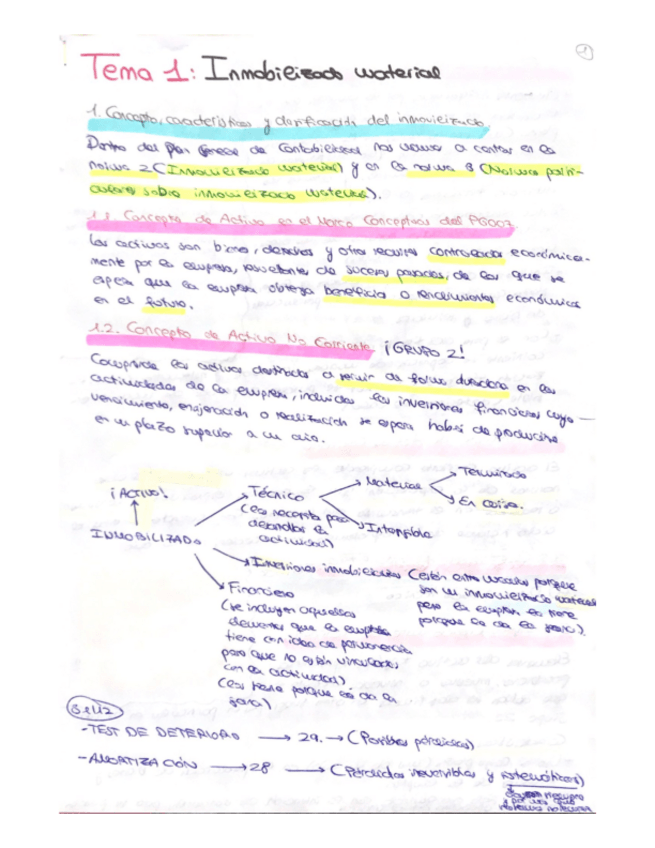 1
Tema 1: Inmovilizado material
1. Concepto, características y clasificación del inmovilizado
Dentro del Plan General de Contabilidad nos vamos a centrar en la
norma 2 (Inmovilizado material) y en la norma 3 (Normas parti-
culares sobre inmovilizado material).
1.1. Concepto de Activo en el Marco Conceptual del PGC07
Los activos son bienes, derechos y otros recursos controlados económica-
mente por la empresa, resultantes de sucesos pasados, de los que se
espera que la empresa obtenga beneficios o rendimientos económicos
en el futuro.
1.2. Concepto de Activo No Corriente ¡GRUPO 2!
Comprende los activos destinados a servir de forma duradera en las
actividades de la empresa, incluidas las inversiones financieras cuyo
vencimiento, enajenación o realización se espera habrá de producirse
en un plazo superior a un año.
¡ACTIVO!
INMOVILIZADO
Técnico
(las necesita para
desarrollar la
actividad)
Material
Terminado
En curso.
Intangible
Inversiones inmobiliarias (están entre medias porque
son un inmovilizado material
pero la empresa lo tiene
porque le da la gana).
Financiero
(se incluyen aquellos
elementos que la empresa
tiene con idea de permanencia
pero que no están vinculados
con la actividad)
(los tiene porque le da la
gana)
-TEST DE DETERIORO → 29. → (Posibles pérdidas)
-AMORTIZACIÓN → 28 → (Pérdidas irreversibles y sistemáticas)